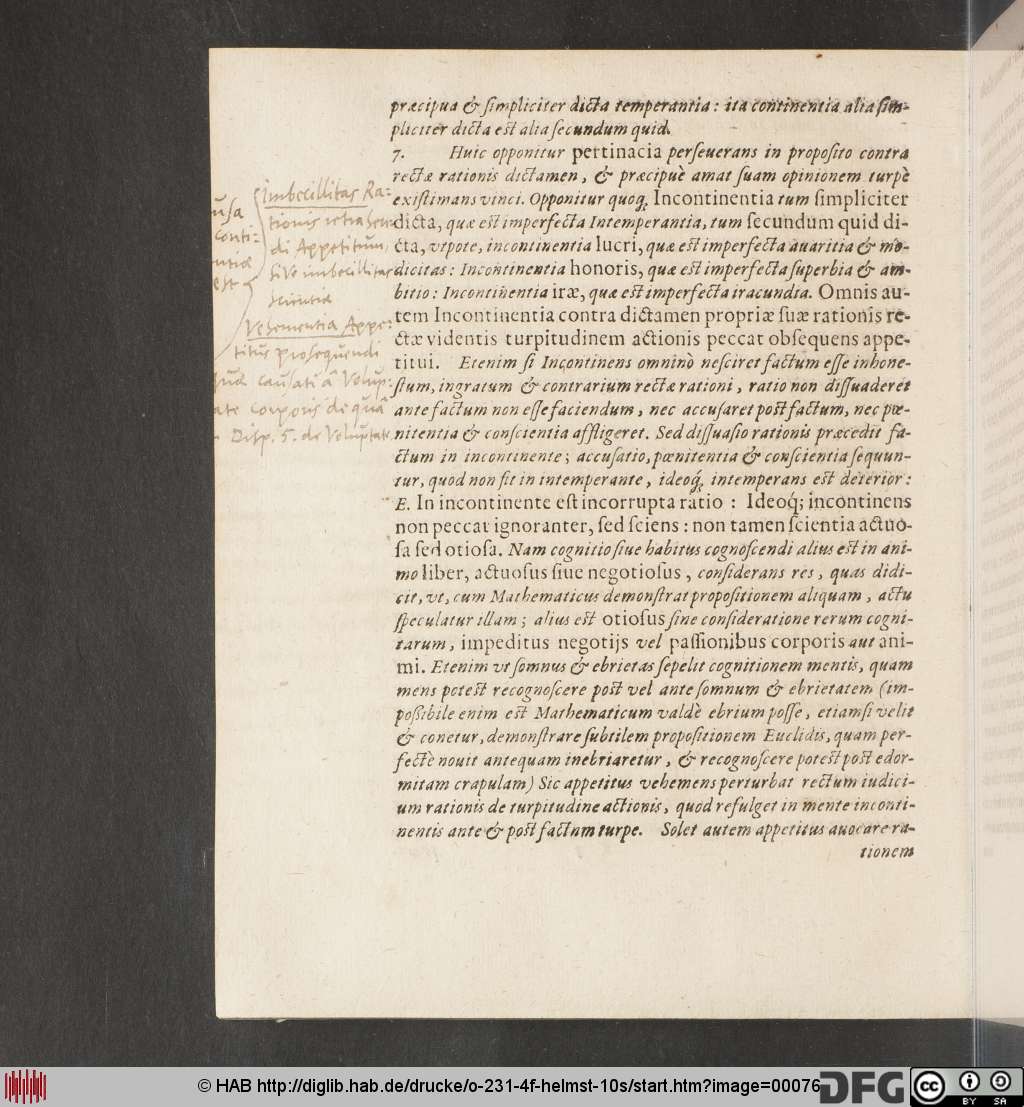 præcipua & ſimpliciter dicta temperantia: ita continentia alia ſim-
pliciter dicta est alia ſecundum quid.
7. Huic opponitur pertinacia perſeuerans in propoſito contra
rectæ rationis dictamen, & præcipuè amat ſuam opinionem turpè
exiſtimans vinci. Opponitur quoq; Incontinentia tum ſimpliciter
dicta, quæ est imperfecta Intemperantia, tum ſecundum quid di-
cta, vtpote, incontinentia lucri, quæ est imperfecta auaritia & mo-
dicitas: Incontinentia honoris, quæ est imperfecta ſuperbia & am-
bitio: Incontinentia iræ, quæ est imperfecta iracundia. Omnis au-
tem Incontinentia contra dictamen propriæ ſuæ rationis re-
ctæ videntis turpitudinem actionis peccat obſequens appe-
titui. Etenim ſi Incontinens omninò neſciret factum eſſe inhone-
ſtum, ingratum & contrarium rectæ rationi, ratio non diſſuaderet
ante factum non eſſe faciendum, nec accuſaret post factum, nec pœ-
nitentia & conſcientia affligeret. Sed diſſuaſio rationis præcedit fa-
ctum in incontinente; accuſatio, pœnitentia & conſcientia ſequun-
tur, quod non fit in intemperante, ideoq; intemperans est deterior:
E. In incontinente eſt incorrupta ratio: Ideoq́; incontinens
non peccat ignoranter, ſed ſciens: non tamen ſcientia actuo-
ſa ſed otioſa. Nam cognitio ſiue habitus cognoſcendi alius est in ani-
mo liber, actuoſus ſiue negotioſus, conſiderans res, quas didi-
cit, vt, cum Mathematicus demonſtrat propoſitionem aliquam, actu
ſpeculatur illam; alius est otioſus ſine conſideratione rerum cogni-
tarum, impeditus negotijs vel paſſionibus corporis aut ani-
mi. Etenim vt ſomnus & ebrietas ſepelit cognitionem mentis, quam
mens potest recognoſcere post vel ante ſomnum & ebrietatem (im-
poßibile enim est Mathematicum valdè ebrium poſſe, etiamſi velit
& conetur, demonſtrare ſubtilem propoſitionem Euclidis, quam per-
fectè nouit antequam inebriaretur, & recognoſcere potest post edor-
mitam crapulam) Sic appetitus vehemens perturbat rectum iudici-
um rationis de turpitudine actionis, quod refulget in mente inconti-
nentis ante & post factum turpe. Solet autem appetitus auocare ra-
tionem
Imbecillitas Ra-
tionis retrahen-
di Appetitum,
sive imbecillitas
scientiæ
usa
conti-
entiæ
est
Vehementia Appe-
titus prosequendi
causati â Volup-
ate Corporis de quâ
Disp. 5. de Voluptate
© HAB http://diglib.hab.de/drucke/o-231-4f-helmst-10s/start.htm?image=00076
DFG
cc
BY SA